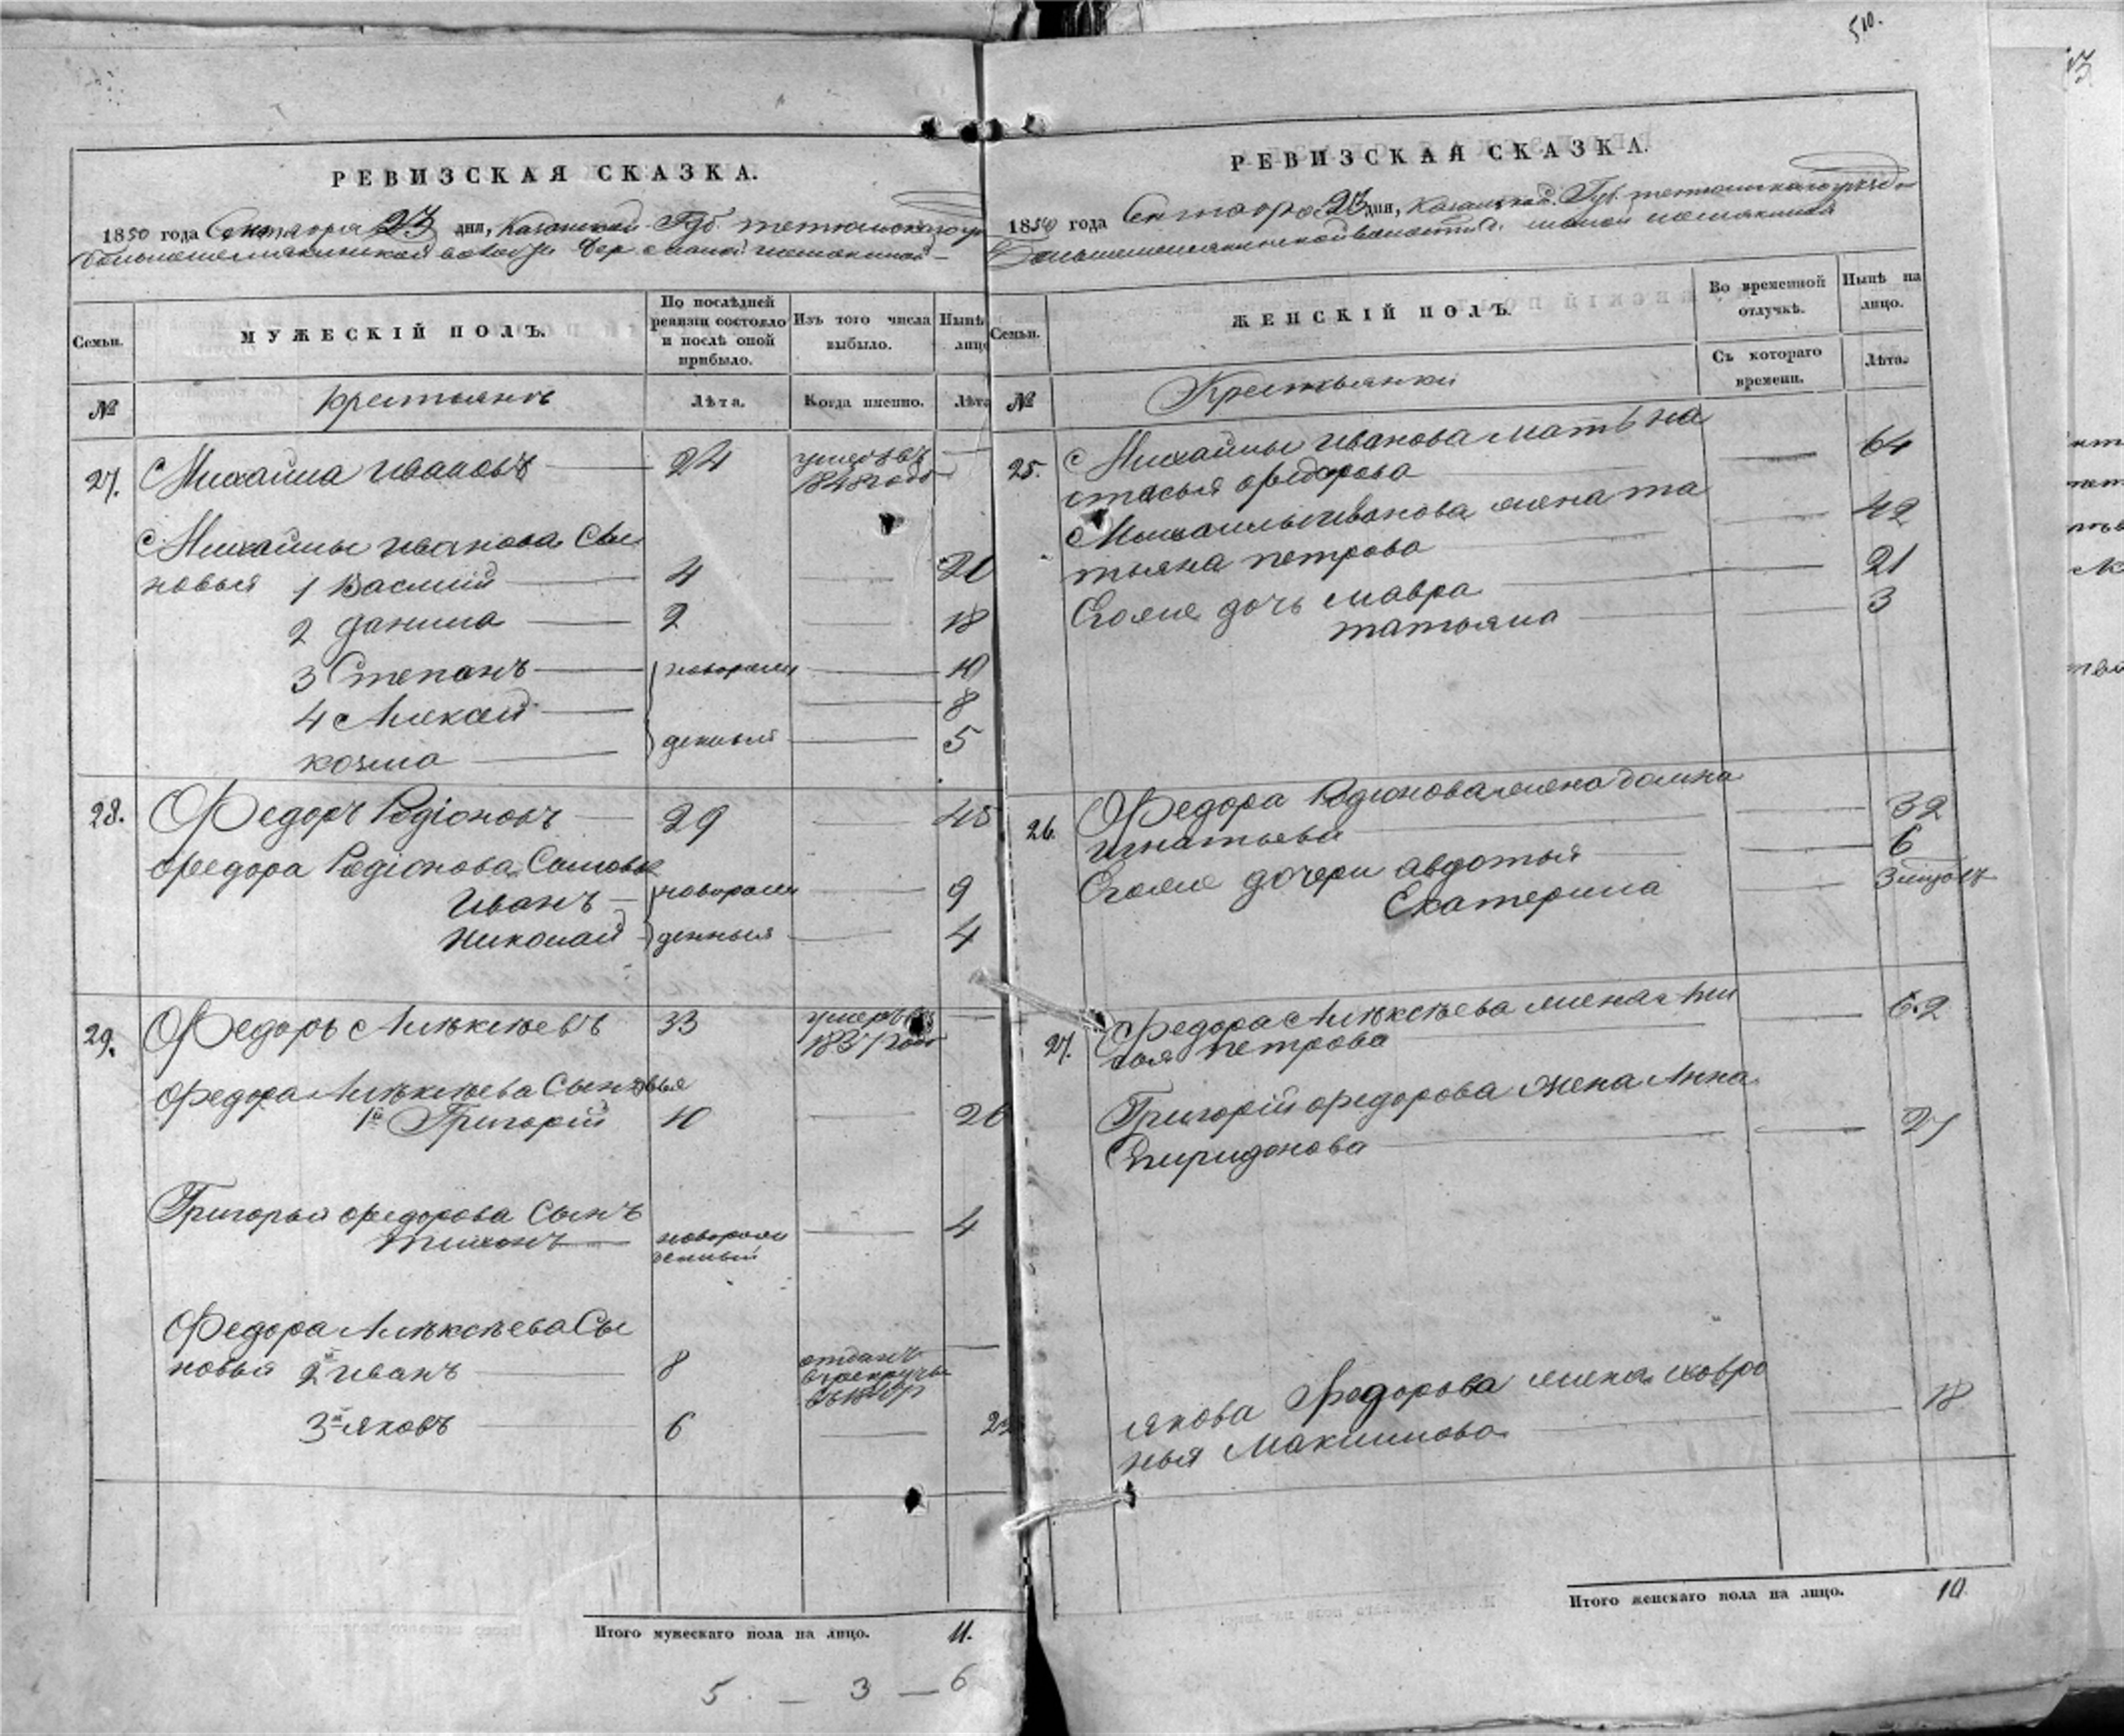 510.
РЕВИЗСКАЯ СКАЗКА.
1850 года Сентября 23 дня, Казанской Губ. тетюшскаго
Большешемякинской волости дер. малой шемякиной
Семьи.
МУЖЕСКІЙ ПОЛЪ.
По послѣдней ревизіи состояло и послѣ оной прибыло.
Изъ того числа выбыло.
Нынѣ лицо
№
крестьянъ
Лѣта.
Когда именно.
Лѣта
27. Михайла Ивановъ 24 умеръ въ
1848 годе
Михайлы Иванова Сы
новья 1 Василий 4 20
2 данила 2 18
3 Степанъ новорож 10
4 Алексей 8
козма денныя 5
28. Федоръ Родіоновъ 29 45
Федора Родіонова Сыновья
Иванъ новорож 9
Николай денныя 4
29. Федоръ Алѣксѣевъ 33 умеръ въ
1837 годе
Федора Алѣксѣева Сыновья
1й Григорій 10 26
Григорья Федорова Сынъ
тихонъ новорож 4
денный
Федора Алѣксѣева Сы
новья 2й Иванъ 8 отданъ
в рекруты
3й яковъ 6 22
Итого мужескаго пола на лицо. 11.
5 — 3 — 6
РЕВИЗСКАЯ СКАЗКА.
1850 года Сентября 23 дня, Казанской Губ. тетюшскаго уезда
Большешемякинской волости д. малой шемякиной
Семьи.
ЖЕНСКІЙ ПОЛЪ.
Во временной отлучкѣ.
Нынѣ на лицо.
№
Крестьянки
Съ котораго времени.
Лѣта.
25. Михайлы Иванова мать на 64
стасья Федорова
Михайлы Иванова жена та 42
тьяна петрова
Егоже дочь мавра 21
татьяна 3
26. Федора Родионова жена домна 32
игнатьева
Егоже дочери авдотья 6
Екатерина 3 месяцовъ
27. Федора Алѣксѣева жена Ани 62
сья петрова
Григорій Федорова жена Анна 27
Спиридонова
якова Федорова жена хавро 18
нья Максимова
Итого женскаго пола на лицо. 10.